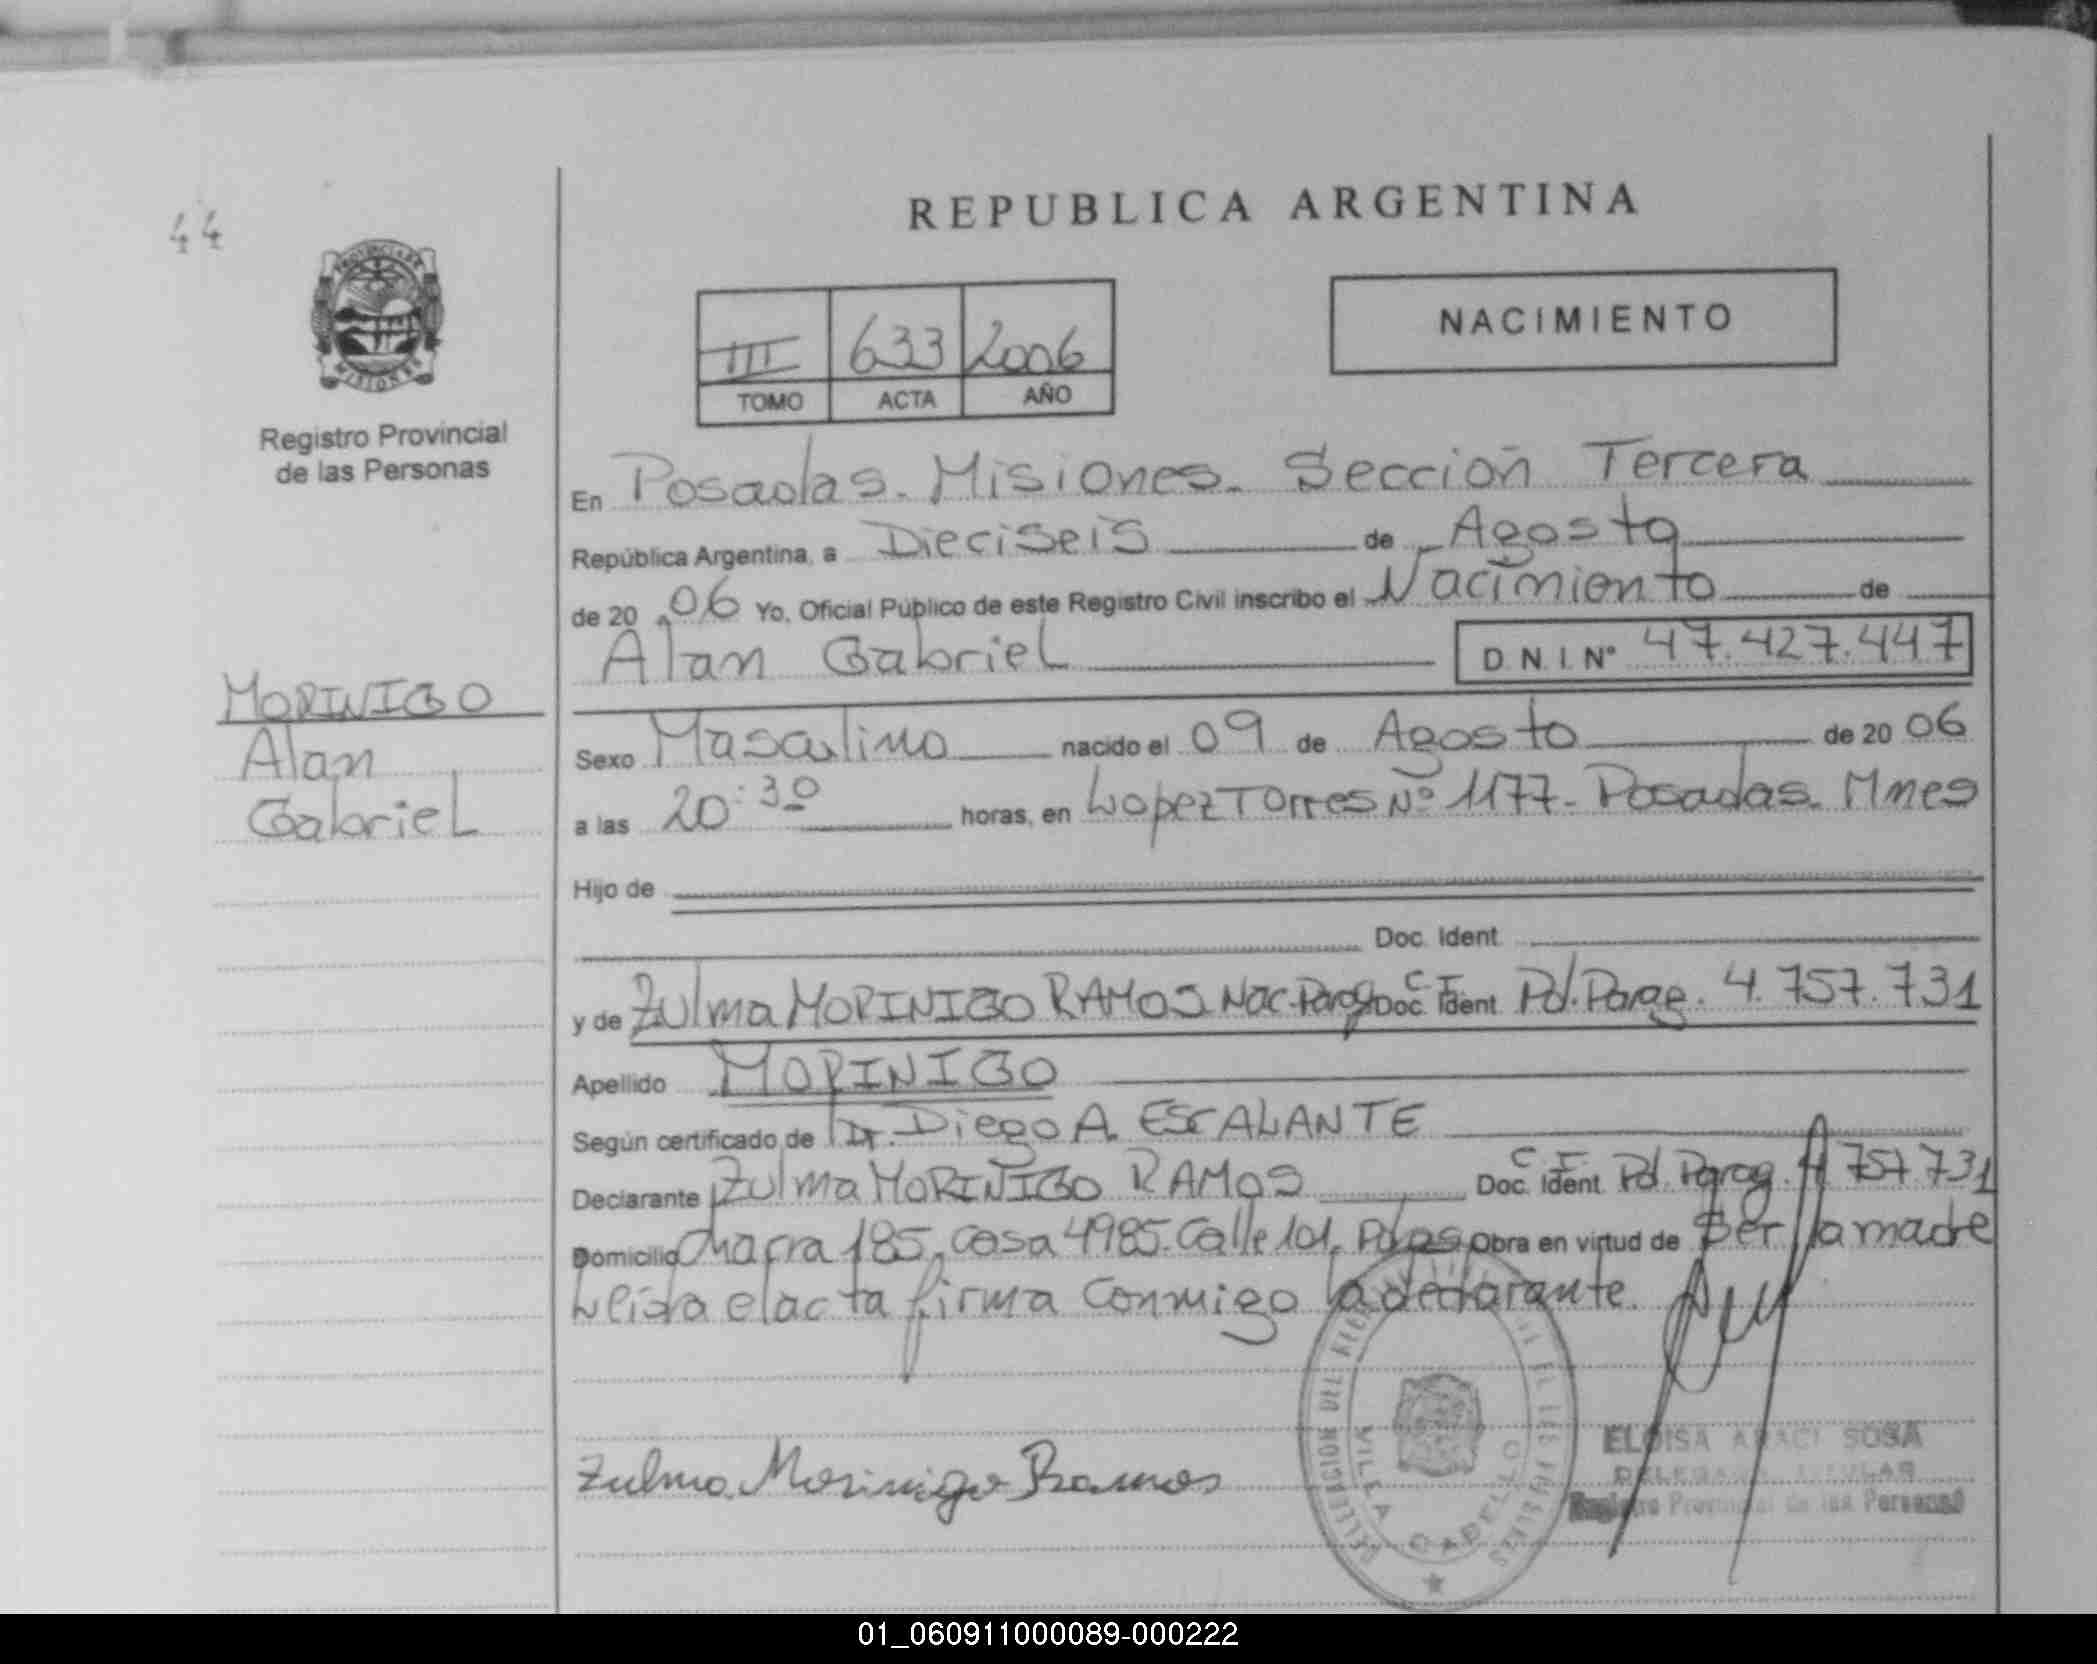 44
REPUBLICA ARGENTINA
PROVINCIA DE
MISIONES
III 633 2006
TOMO ACTA AÑO
NACIMIENTO
Registro Provincial
de las Personas
En Posadas. Misiones. Sección Tercera
República Argentina, a Dieciseis de Agosto
de 20 06 Yo, Oficial Público de este Registro Civil inscribo el Nacimiento de
Alan Gabriel D.N.I. Nº 47.427.447
MORINIGO
Alan
Gabriel
Sexo Masculino nacido el 09 de Agosto de 20 06
a las 20:30 horas, en Lopez Torres Nº 1177- Posadas. Mnes
Hijo de
Doc. Ident.
y de Zulma MORINIGO RAMOS Nac. Parag Doc. Ident. C. I. Pol. Parag. 4.757.731
Apellido MORINIGO
Según certificado de Dr. Diego A. ESCALANTE
Declarante Zulma MORINIGO RAMOS Doc. Ident. C. I. Pol. Parag. 4 757 731
Domicilio Chacra 185, Casa 4985. Calle 101, Pdas Obra en virtud de Ser la madre
Leida el acta firma conmigo la declarante.
Zulma Morinigo Ramos
DELEGACION DEL
VILLA CABELLO
ELOISA ARACI SOSA
DELEGADA TITULAR
Registro Provincial de las Personas
01_060911000089-000222